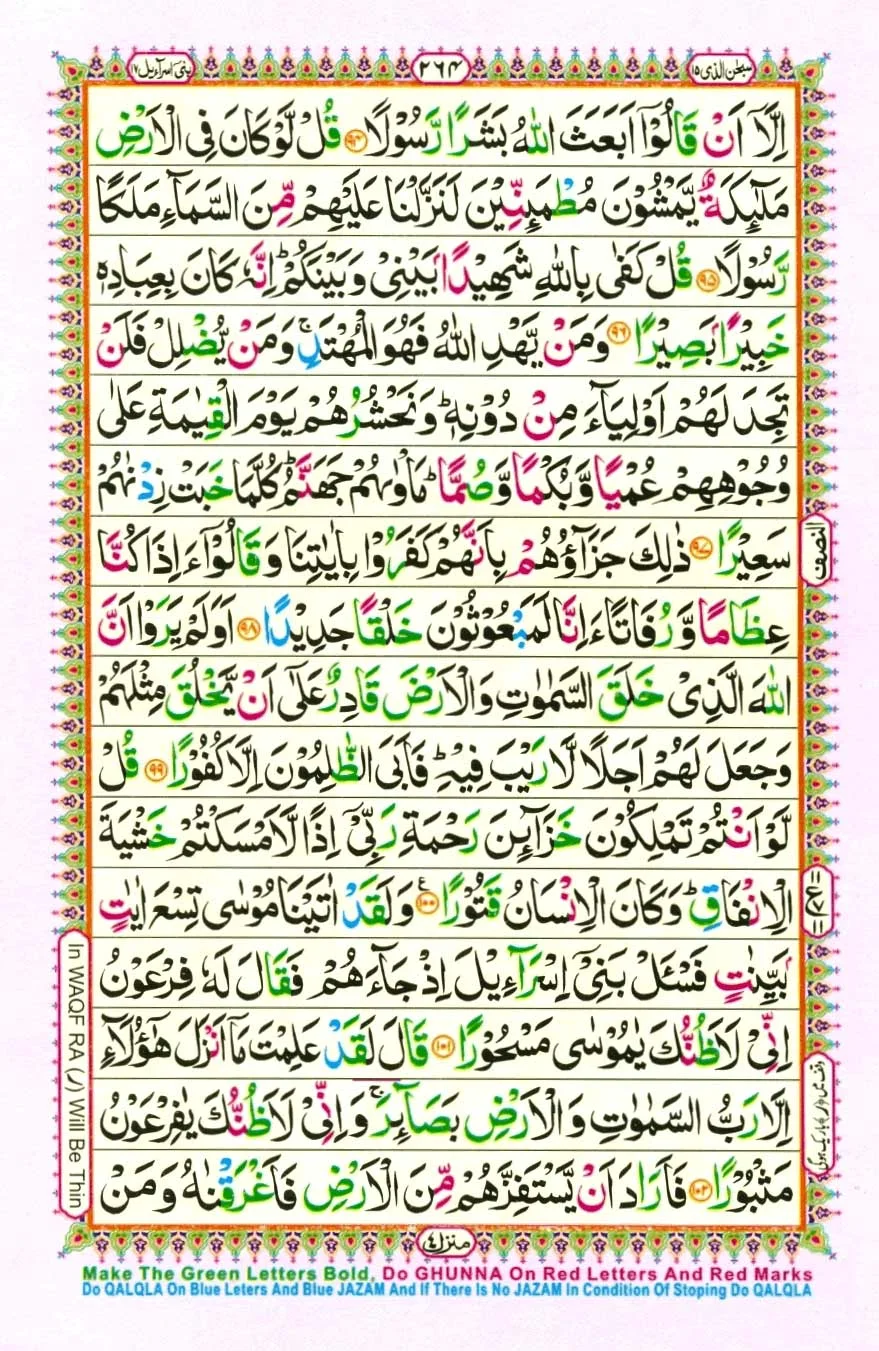 سبحٰن الذی ۱۵
۲۶۴
بنیٓ اسرآءیل ۱۷
اِلَّاۤ اَنْ قَالُوْۤا اَبَعَثَ اللّٰهُ بَشَرًا رَّسُوْلًا ﴿۹۴﴾ قُلْ لَّوْ كَانَ فِی الْاَرْضِ
مَلٰٓىِٕكَةٌ یَّمْشُوْنَ مُطْمَىِٕنِّیْنَ لَنَزَّلْنَا عَلَیْهِمْ مِّنَ السَّمَآءِ مَلَكًا
رَّسُوْلًا ﴿۹۵﴾ قُلْ كَفٰی بِاللّٰهِ شَهِیْدًۢا بَیْنِیْ وَبَیْنَكُمْ ؕ اِنَّهٗ كَانَ بِعِبَادِهٖ
خَبِیْرًۢا بَصِیْرًا ﴿۹۶﴾ وَمَنْ یَّهْدِ اللّٰهُ فَهُوَ الْمُهْتَدِ ۚ وَمَنْ یُّضْلِلْ فَلَنْ
تَجِدَ لَهُمْ اَوْلِیَآءَ مِنْ دُوْنِهٖ ؕ وَنَحْشُرُهُمْ یَوْمَ الْقِیٰمَةِ عَلٰی
وُجُوْهِهِمْ عُمْیًا وَّبُكْمًا وَّصُمًّا ؕ مَاْوٰىهُمْ جَهَنَّمُ ؕ كُلَّمَا خَبَتْ زِدْنٰهُمْ
سَعِیْرًا ﴿۹۷﴾ ذٰلِكَ جَزَآؤُهُمْ بِاَنَّهُمْ كَفَرُوْا بِاٰیٰتِنَا وَقَالُوْۤا ءَاِذَا كُنَّا
النصف
عِظَامًا وَّرُفَاتًا ءَاِنَّا لَمَبْعُوْثُوْنَ خَلْقًا جَدِیْدًا ﴿۹۸﴾ اَوَلَمْ یَرَوْا اَنَّ
اللّٰهَ الَّذِیْ خَلَقَ السَّمٰوٰتِ وَالْاَرْضَ قَادِرٌ عَلٰۤی اَنْ یَّخْلُقَ مِثْلَهُمْ
وَجَعَلَ لَهُمْ اَجَلًا لَّا رَیْبَ فِیْهِ ؕ فَاَبَی الظّٰلِمُوْنَ اِلَّا كُفُوْرًا ﴿۹۹﴾ قُلْ
لَّوْ اَنْتُمْ تَمْلِكُوْنَ خَزَآىِٕنَ رَحْمَةِ رَبِّیْۤ اِذًا لَّاَمْسَكْتُمْ خَشْیَةَ
الْاِنْفَاقِ ؕ وَكَانَ الْاِنْسَانُ قَتُوْرًا ﴿۱۰۰﴾ وَلَقَدْ اٰتَیْنَا مُوْسٰی تِسْعَ اٰیٰتٍۭ
بَیِّنٰتٍ فَسْـَٔلْ بَنِیْۤ اِسْرَآءِیْلَ اِذْ جَآءَهُمْ فَقَالَ لَهٗ فِرْعَوْنُ
اِنِّیْ لَاَظُنُّكَ یٰمُوْسٰی مَسْحُوْرًا ﴿۱۰۱﴾ قَالَ لَقَدْ عَلِمْتَ مَاۤ اَنْزَلَ هٰۤؤُلَآءِ
اِلَّا رَبُّ السَّمٰوٰتِ وَالْاَرْضِ بَصَآىِٕرَ ۚ وَاِنِّیْ لَاَظُنُّكَ یٰفِرْعَوْنُ
مَثْبُوْرًا ﴿۱۰۲﴾ فَاَرَادَ اَنْ یَّسْتَفِزَّهُمْ مِّنَ الْاَرْضِ فَاَغْرَقْنٰهُ وَمَنْ
وقف میں (ر) باریک ہوگی
In WAQF RA (ر) Will Be Thin
منزل ۴
Make The Green Letters Bold, Do GHUNNA On Red Letters And Red Marks
Do QALQLA On Blue Leters And Blue JAZAM And If There Is No JAZAM In Condition Of Stoping Do QALQLA